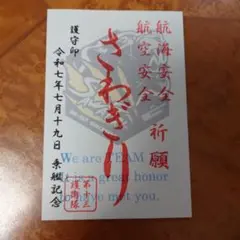 航海安全
航空安全
祈願
さわぎり
護守印
令和七年七月十九日 乗艦記念
We are TEAM
great honor
to have met you.
第十三
護衛隊